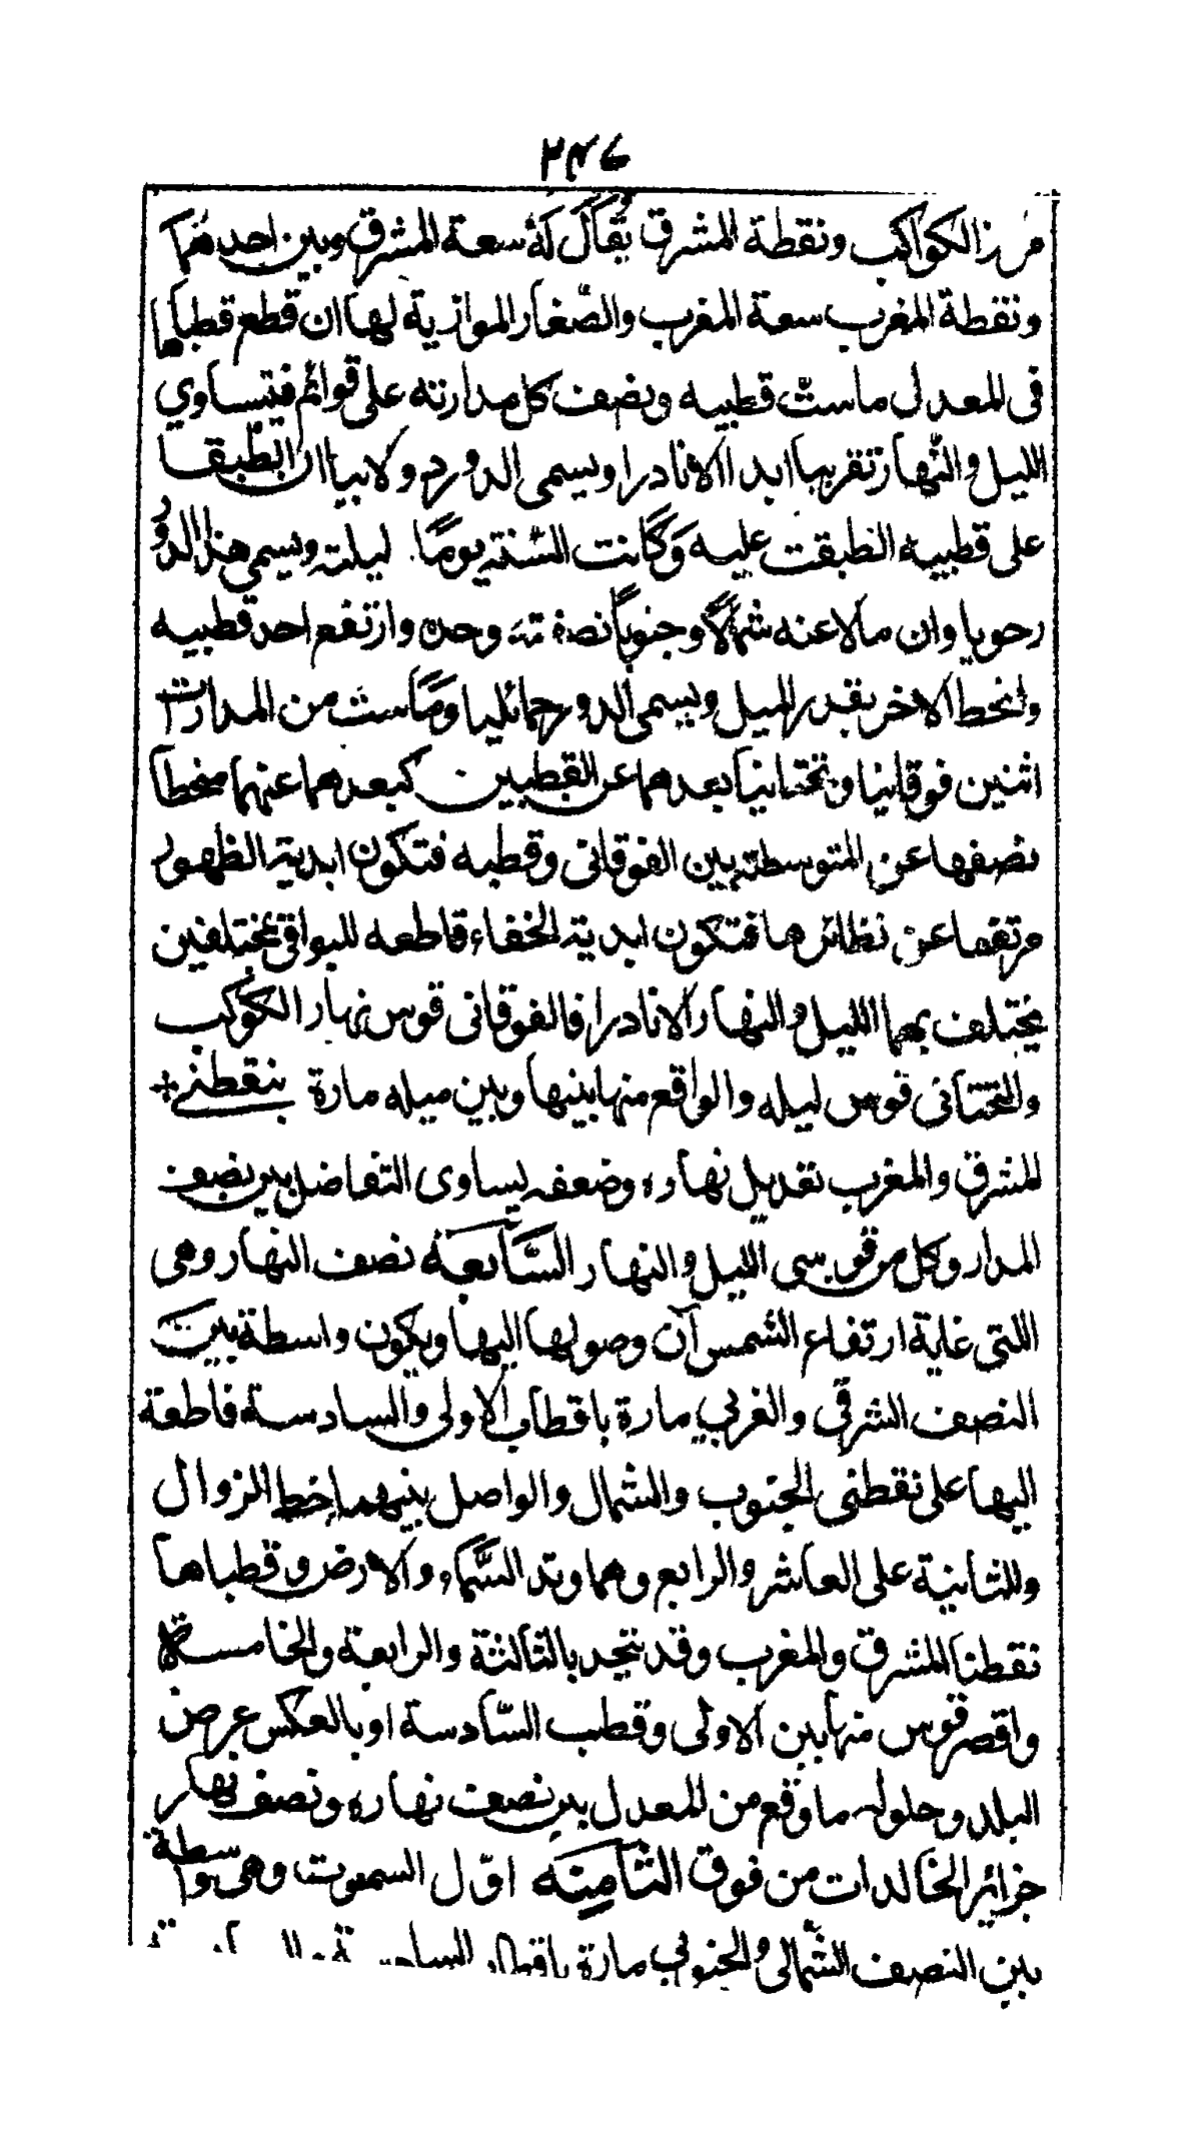 ٢٤٦
من الكواكب ونقطة المشرق يقال له سعة المشرق وبين احدهما
ونقطة المغرب سعة المغرب والصغار الموازية لها ان قطع قطباها
فى المعدل ماست قطبيه ونصف كل مدارته على قوائم فتساوي
الليل والنهار تقريبا ابدا الا نادرا ويسمى الدور دولابيا ان الطبقا
على قطبيه انطبقت عليه وكانت السنة يوما ليلته ويسمى هذا الدور
رحويا وان مالا عنه شمالا وجنوبا نصفته وحده وارتفع احد قطبيه
وانحط الاخر بقدر الميل ويسمى الدور حمائليا وماست من المدارات
اثنين فوقانيا وتحتانيا بعدهما عن القطبين كبعدهما عنهما منحطا
نصفها عن المتوسطة بين الفوقانى وقطبه فتكون ابدية الظهور
مرتفعا عن نظائرها فتكون ابدية الخفاء قاطعه للبواقى بمختلفين
يختلف بهما الليل والنهار الا نادرا فالفوقانى قوس نهار الكوكب
والتحتانى قوس ليله والواقع منها بينها وبين ميله مارة بنقطتى
المشرق والمغرب تعديل نهاره وضعفه يساوى التفاضل بين نصف
المدار وكل من قوسى الليل والنهار السابعة نصف النهار وهى
اللتى غاية ارتفاع الشمس آن وصولها اليها ويكون واسطة بين
النصف الشرقى والغربي مارة باقطاب الاولى والسادسة قاطعة
اليها على نقطتى الجنوب والشمال والواصل بينهما خط الزوال
والثانية على العاشر والرابع وهما وتد السماء والارض وقطباها
نقطتا المشرق والمغرب وقد تتحد بالثالثة والرابعة والخامسة
واقصر قوس منها بين الاولى وقطب السادسة او بالعكس عرض
البلد وحلوله ما وقع من المعدل بين نصف نهاره ونصف نهار
جزائر الخالدات من فوق الثامنه اوّل السموت وهى واسطة
بين النصف الشمالى والجنوبي مارة باقطاب